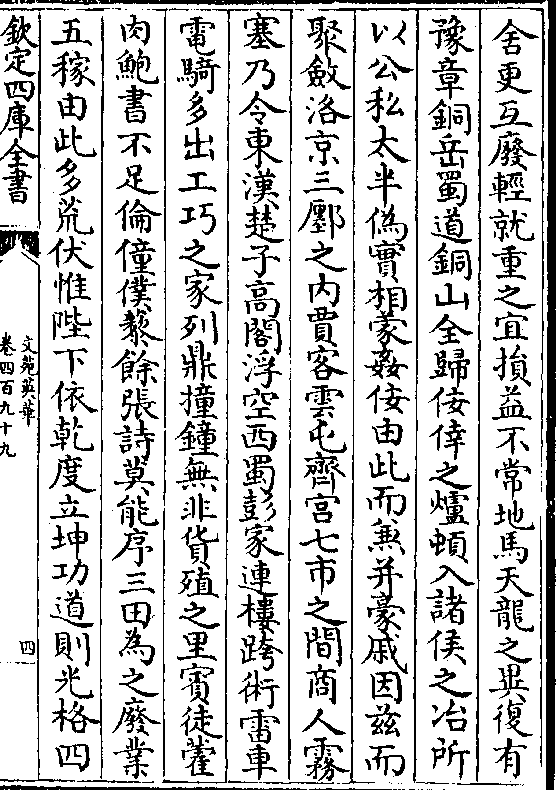 舍更互廢輕就重之宜損益不常地馬天龍之異復有
豫章銅岳蜀道銅山全歸佞倖之爐頓入諸侯之冶所
以公私太半偽實相蒙姦佞由此而兼并豪戚因兹而
聚斂洛京三鄽之内賈客雲屯齊宫七市之間商人霧
塞乃令東漢楚子髙閣浮空西蜀彭家連樓跨術雷車
電騎多出工巧之家列鼎撞鐘無非貨殖之里賓徒藿
肉鮑書不足倫僮僕藜餘張詩莫能序三田為之廢業
五稼由此多荒伏惟陛下依乾度立坤功道則光格四
欽定四庫全書
文苑英華
卷四百九十九
四